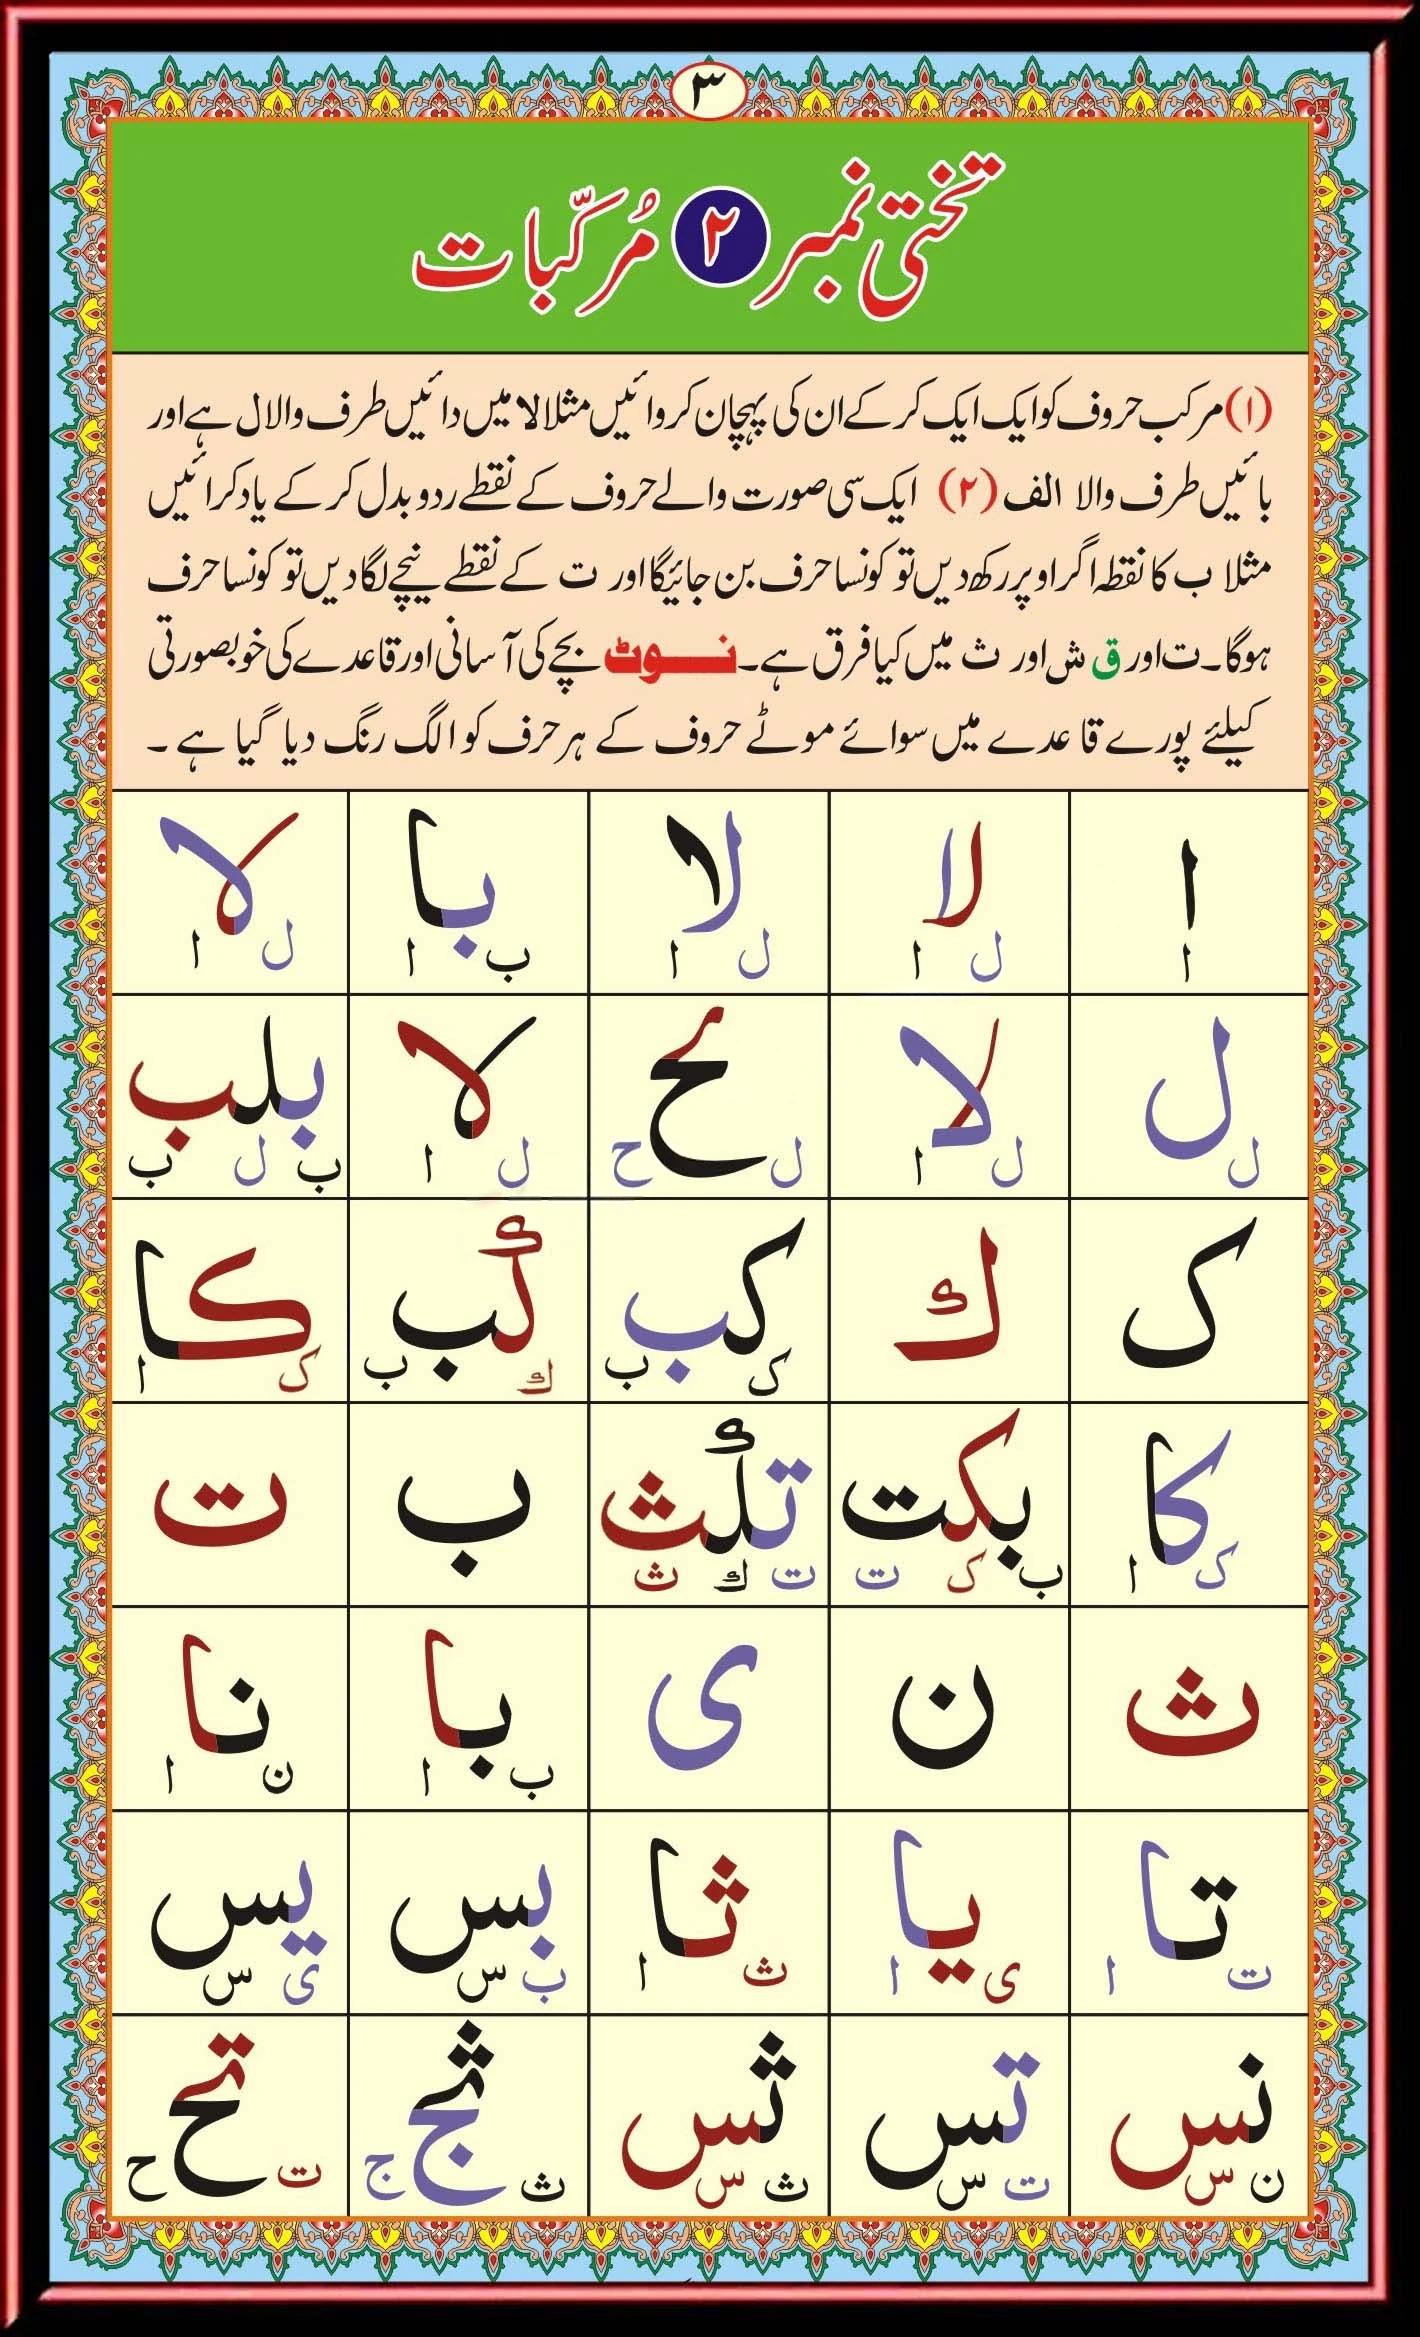 ۳
تختی نمبر ۲ مُرکّبات
(۱) مرکب حروف کو ایک ایک کر کے ان کی پہچان کروائیں مثلا لا میں دائیں طرف والا ل ہے اور
بائیں طرف والا الف (۲) ایک سی صورت والے حروف کے نقطے ردو بدل کر کے یاد کرائیں
مثلا ب کا نقطہ اگر اوپر رکھ دیں تو کونسا حرف بن جائیگا اور ت کے نقطے نیچے لگا دیں تو کونسا حرف
ہوگا۔ ت اور ق ش اور ث میں کیا فرق ہے۔ نوٹ بچے کی آسانی اور قاعدے کی خوبصورتی
کیلئے پورے قاعدے میں سوائے موٹے حروف کے ہر حرف کو الگ رنگ دیا گیا ہے ۔
ا لا لا با لا
ا ل ا ل ا ب ا ل ا
ل لا لح لا بلب
ل ل ا ل ح ل ا ب ل ب
ک ك کب كب کا
ک ب ك ب ک ا
کا بکت تكث ب ت
ک ا ب ک ت ت ك ث
ث ن ی با نا
ب ا ن ا
تا یا ثا بس یس
ت ا ی ا ث ا ب س ی س
نس تس ثس ثج تح
ن س ت س ث س ث ج ت ح